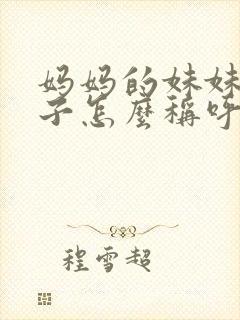 妈妈的妹妹
子怎麼稱呼
程雪超